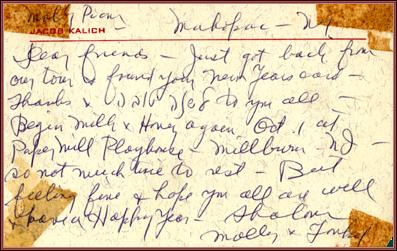 Molly Picon Mahopac - NY
JACOB KALICH
Dear friends - Just got back from
our tour & found your New Years card -
Thanks & to you all -
Begin Milk & Honey again Oct. 1 at
Paper Mill Playhouse - Millburn - NJ -
so not much time to rest - But
feeling fine & hope you all are well
& have a Happy Year - Shalom
Molly & Yankel